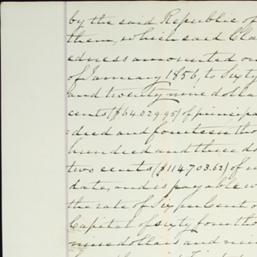 by the said Republic of
them, which said Cla
edness amounted on
of January 1856, to Sixty
and twenty nine dolla
cents ($64.029.95) of principa
dred and fourteen tho
hundred and three do
two cents ($114703.62) of in
date, and is payable w
the rate of six per cent o
Capital of sixty four tho
nine dollars and nine